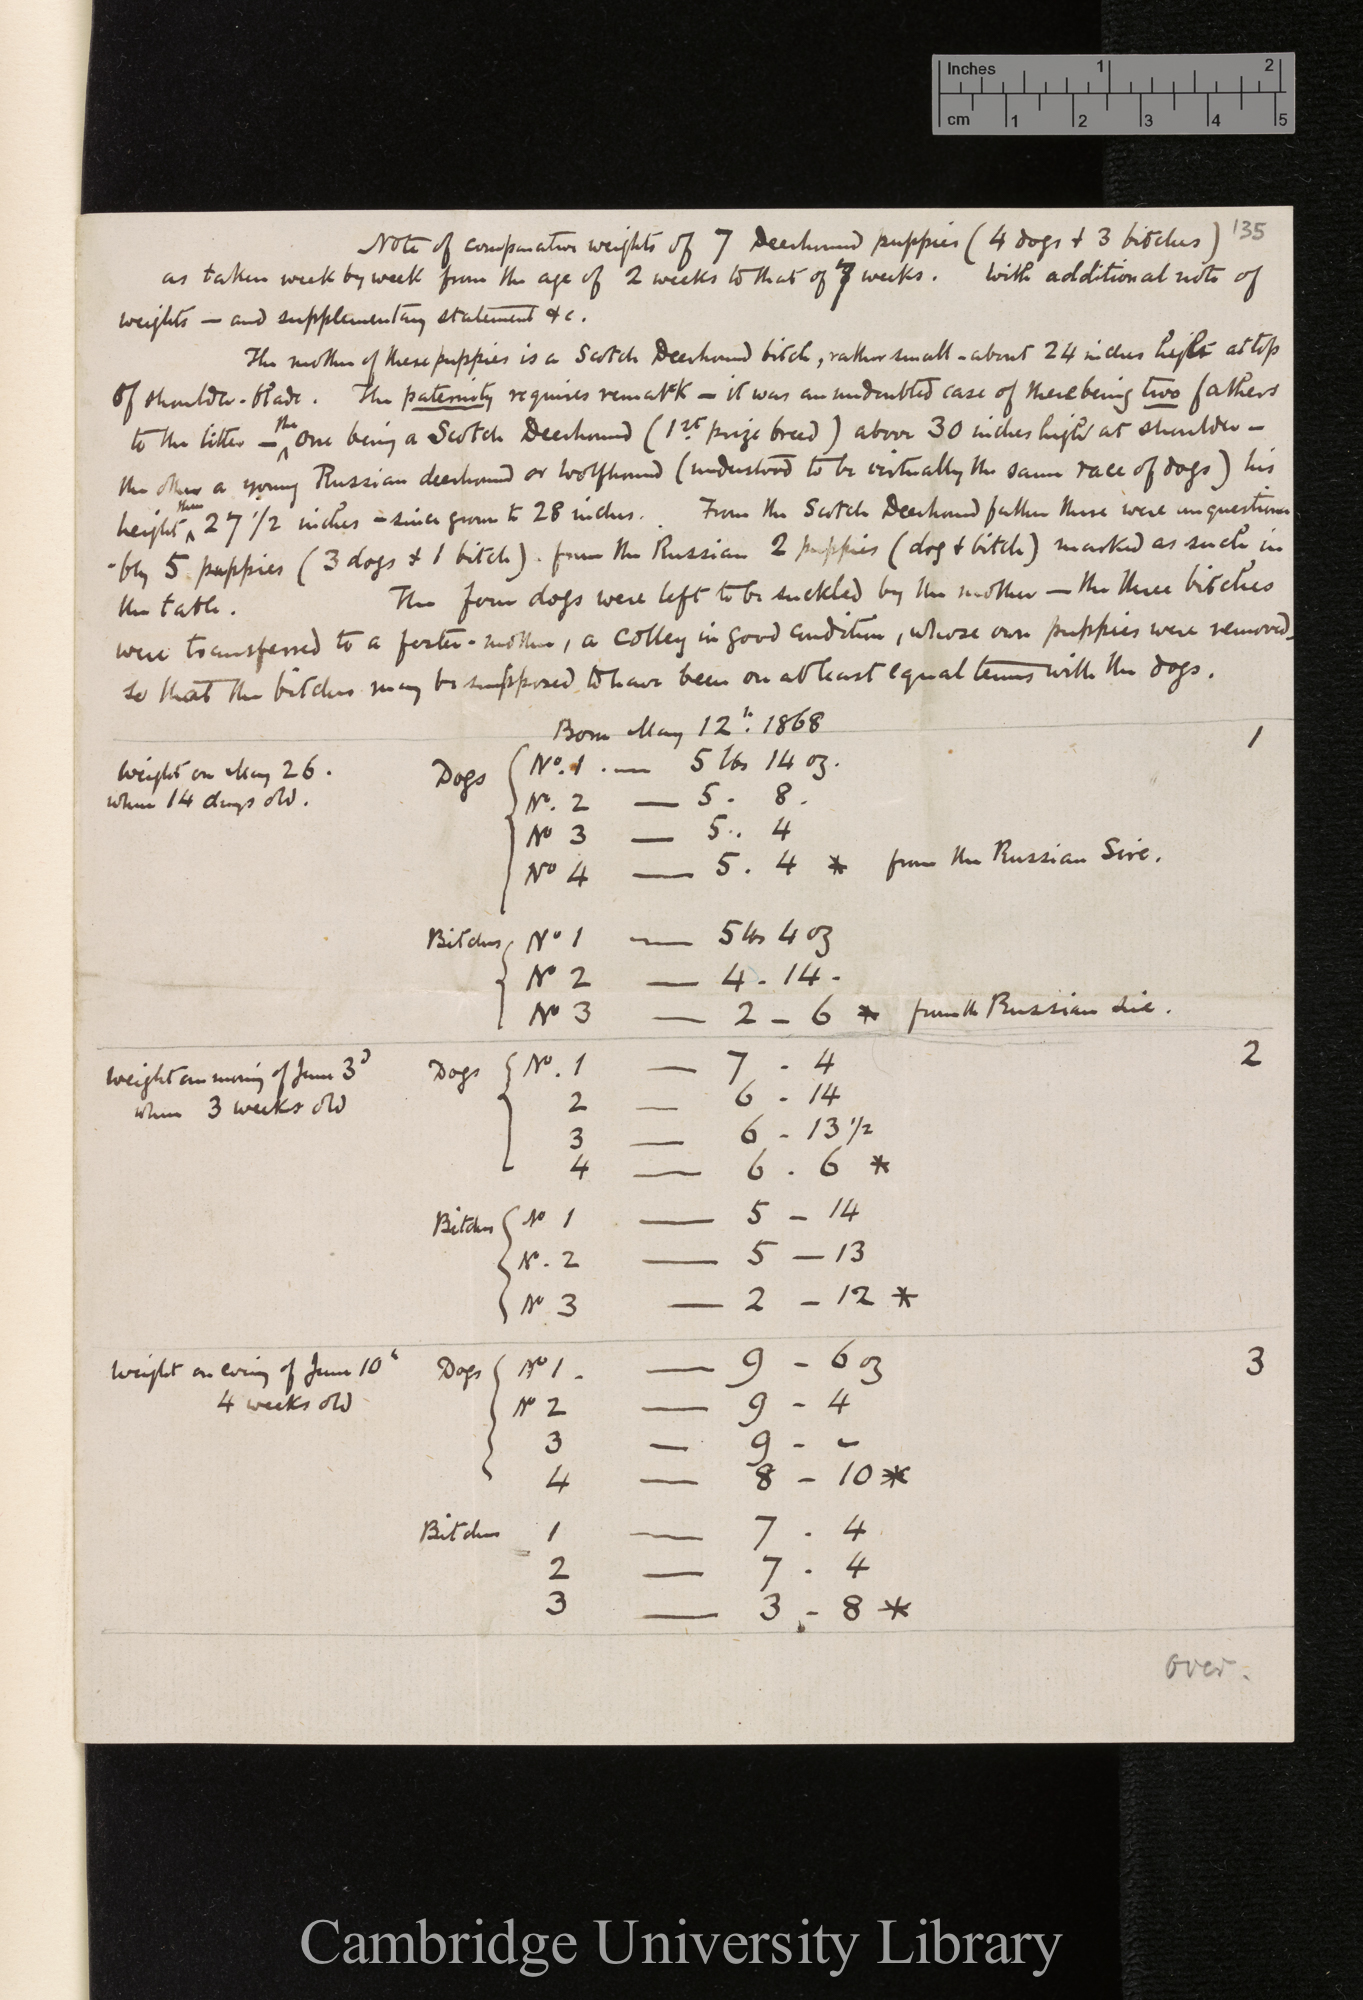 Inches 1 2
cm 1 2 3 4 5
135
Note of comparative weights of 7 Deerhound puppies (4 dogs & 3 bitches)
as taken week by week from the age of 2 weeks to that of 7 weeks. With additional note of
weights — and supplementary statement &c.
The mother of these puppies is a Scotch Deerhound bitch, rather small - about 24 inches high at top
of shoulder-blade. The paternity requires remark — it was an undoubted case of there being two fathers
to the litter — the one being a Scotch Deerhound (1st prize breed) above 30 inches high at shoulder —
the other a young Russian deerhound or Wolfhound (understood to be virtually the same race of dogs) his
height then 27 1/2 inches - since grown to 28 inches. From the Scotch Deerhound father there were unquestiona
-bly 5 puppies (3 dogs & 1 bitch). from the Russian 2 puppies (dog & bitch) marked as such in
the table. The four dogs were left to be suckled by the mother — the three bitches
were transferred to a foster-mother, a Colley in good condition, whose own puppies were removed,
so that the bitches may be supposed to have been on at least equal terms with the dogs.
Born May 12th. 1868
1
Weight on May 26.
when 14 days old.
Dogs No. 1 . — 5 lbs 14 oz.
No. 2 — 5. 8.
No 3 — 5. 4
No 4 — 5. 4 * from the Russian Sire.
Bitches No 1 — 5 lbs 4 oz
No 2 — 4 - 14 -
No 3 — 2 - 6 * from the Russian Sire.
2
Weight on morning of June 3d
when 3 weeks old
Dogs No. 1 — 7 . 4
2 — 6 - 14
3 — 6 - 13 1/2
4 — 6 . 6 *
Bitches No 1 — 5 - 14
No. 2 — 5 — 13
No 3 — 2 - 12 *
3
Weight on evening of June 10th
4 weeks old
Dogs No 1. — 9 - 6 oz
No 2 — 9 - 4
3 — 9 - -
4 — 8 - 10 *
Bitches 1 — 7 . 4
2 — 7 . 4
3 — 3 - 8 *
over.
Cambridge University Library